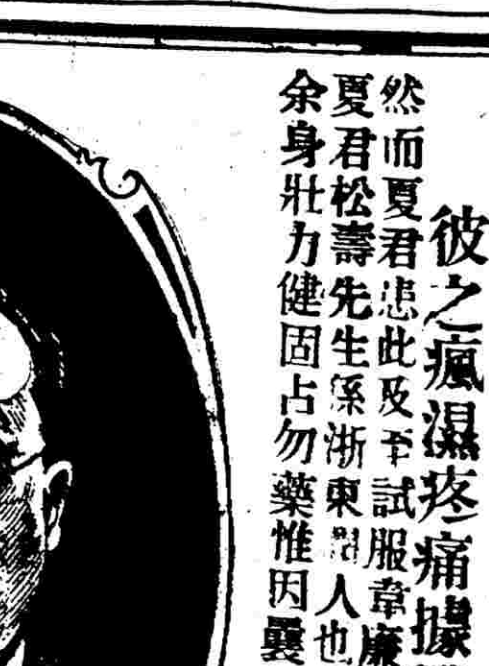 彼之瘋濕疼痛據
然而夏君患此及至試服韋廉
夏君松壽先生係浙東人也
余身壯力健固占勿藥惟因曩